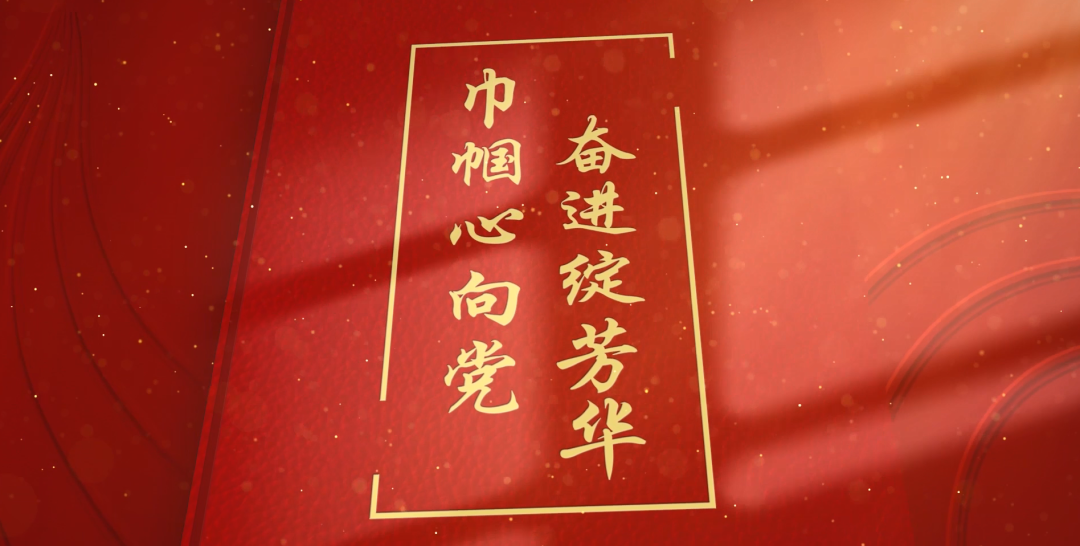 巾帼心向党
奋进绽芳华